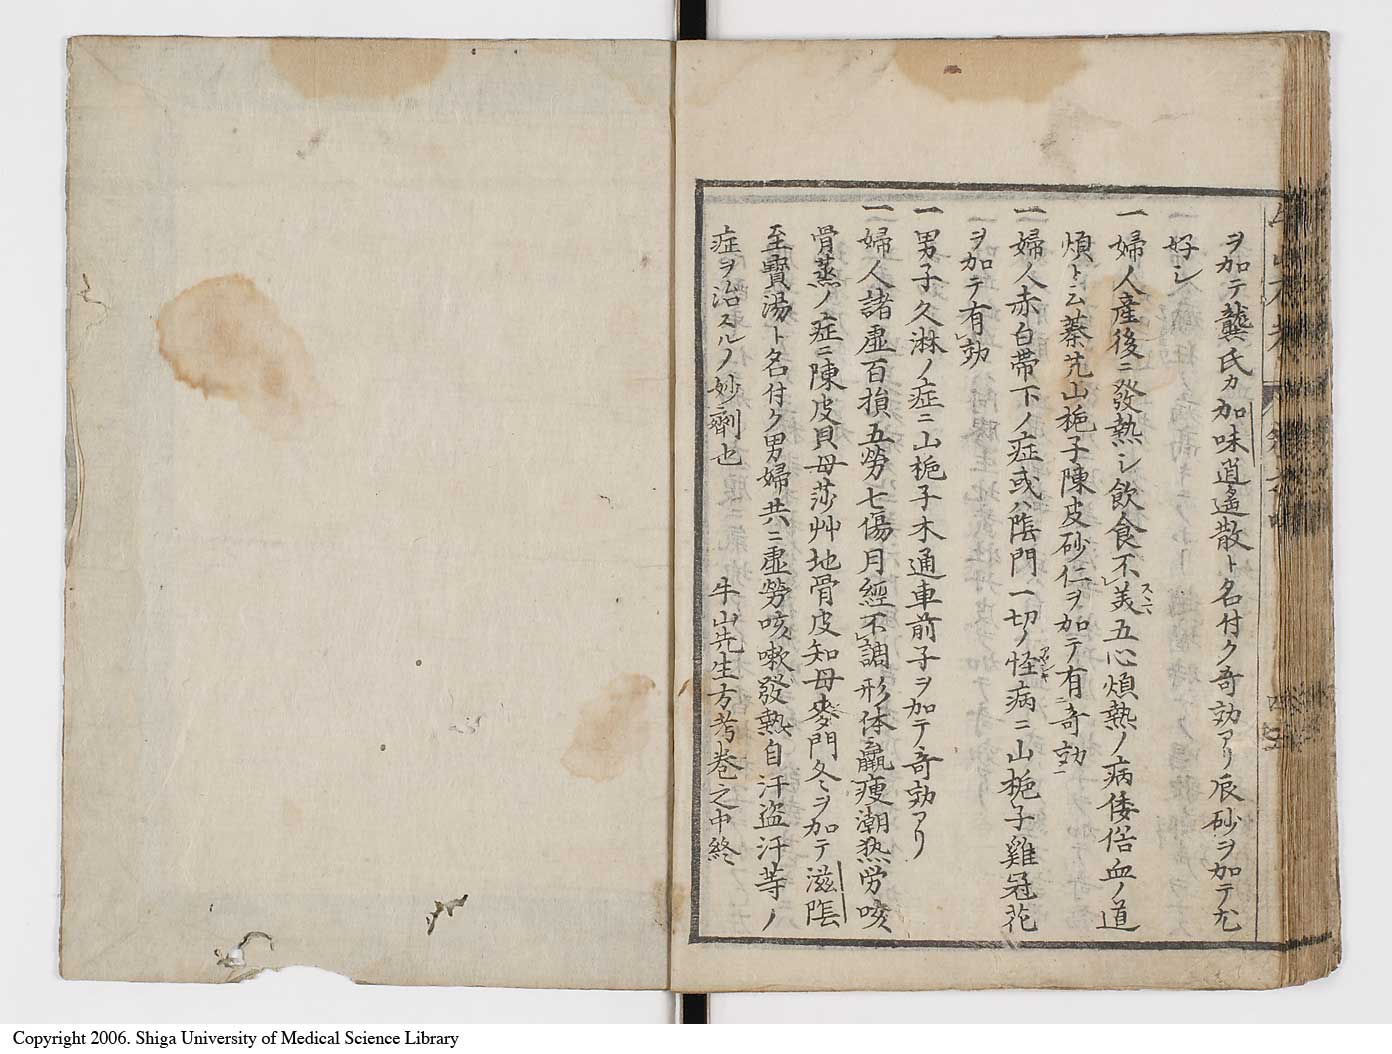 ヲ加テ龔氏カ加味逍遙散ト名付ク奇効アリ辰砂ヲ加テ尤
好シ
一婦人産後ニ發熱シ飲食不美五心煩熱ノ病倭俗血ノ道
煩ト云蓁艽山梔子陳皮砂仁ヲ加テ有奇効
一婦人赤白帯下ノ症或ハ陰門一切ノ怪病ニ山梔子雞冠花
ヲ加テ有効
一男子久淋ノ症ニ山梔子木通車前子ヲ加テ奇効アリ
一婦人諸虚百損五勞七傷月經不調形体羸痩潮熱労咳
骨蒸ノ症ニ陳皮貝母莎艸地骨皮知母麥門冬ヲ加テ滋陰
至寳湯ト名付ク男婦共ニ虚勞咳嗽發熱自汗盗汗等ノ
症ヲ治スルノ妙劑也
牛山先生方考巻之中終
Copyright 2006. Shiga University of Medical Science Library